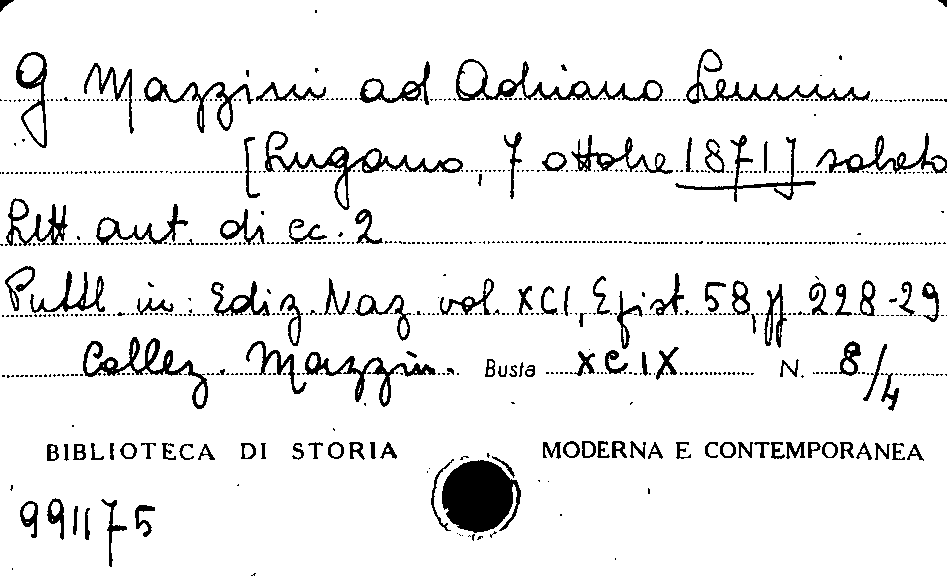 G. Mazzini ad Adriano Lemmi
[Lugano, 7 ottobre 1871] sabato
Lett. aut. di cc. 2
Pubbl. in: Ediz. Naz. vol. XCI, Epist. 58, pp. 228-29
Collez. Mazzin. Busta XCIX N. 8/4
BIBLIOTECA DI STORIA MODERNA E CONTEMPORANEA
991175